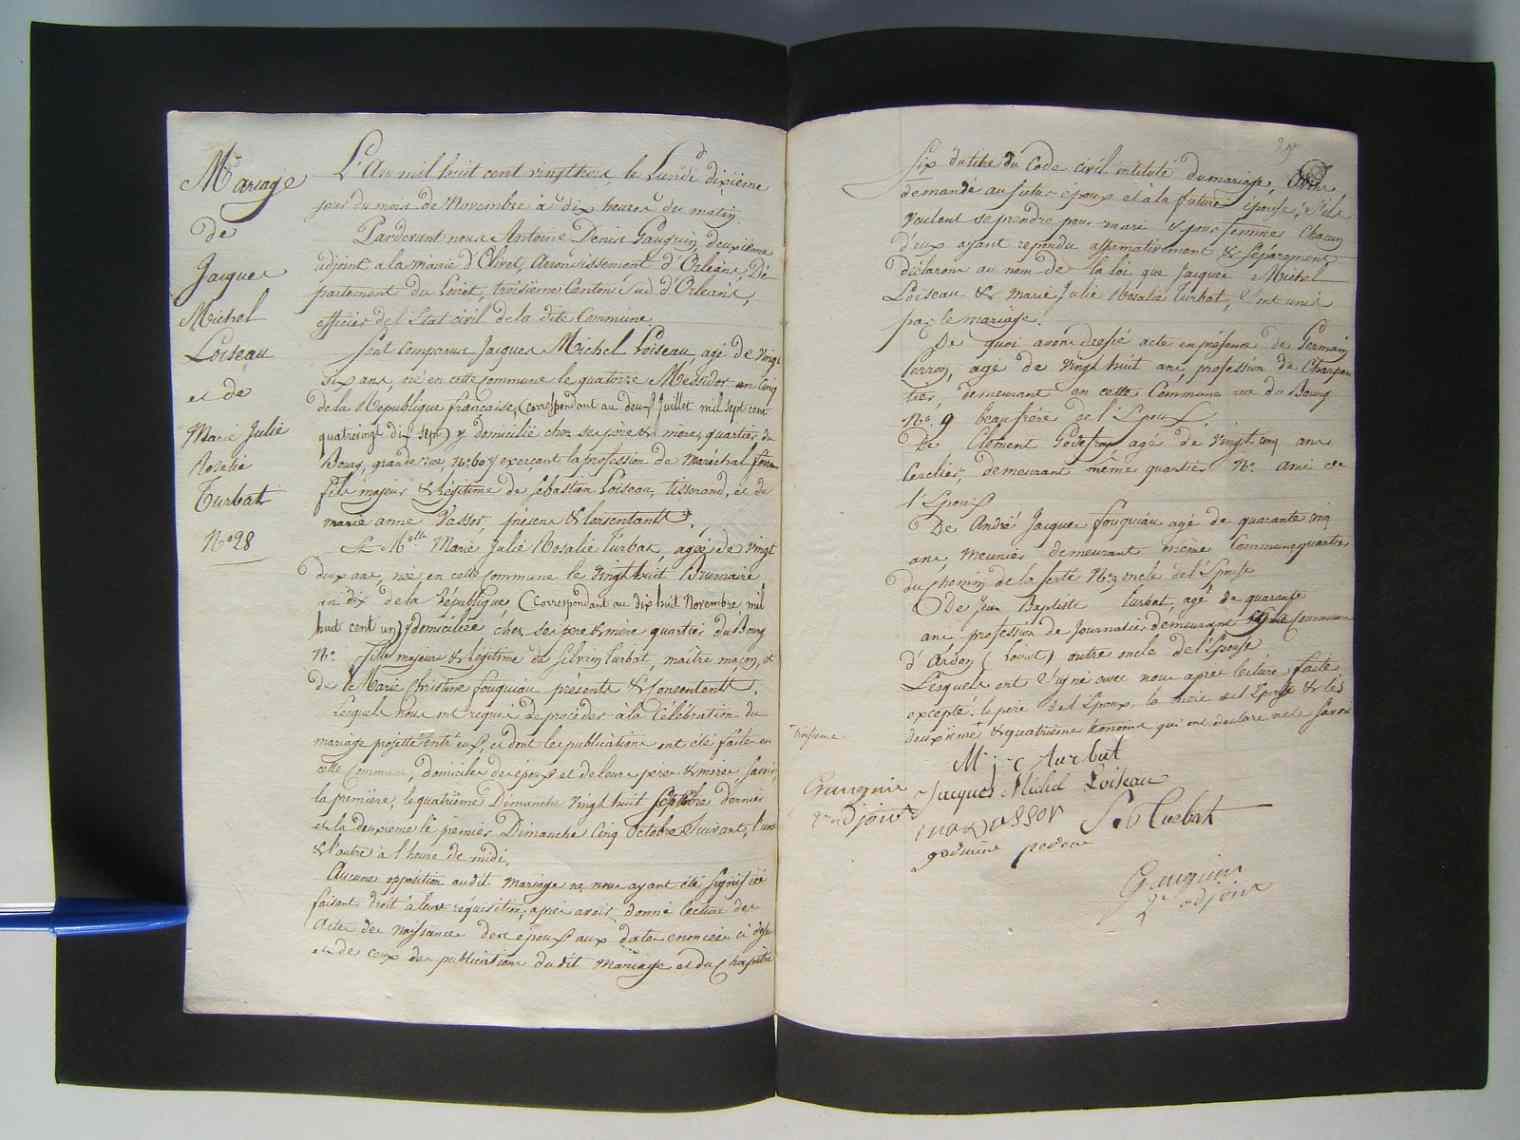 Mariage
de
Jacques
Michel
Loiseau
et de
Marie Julie
Rosalie
Turbat
No. 28
L'An mil huit cent vingt trois, le Lundi dixième
jour du mois de Novembre à dix heures du matin.
Pardevant nous Antoine Denis Gauguin, deuxième
adjoint a la mairie d'Olivet, Arrondissement d'Orléans, Dé-
partement du Loiret, troisième Canton Sud d'Orléans,
officier de l'Etat civil de la dite Commune
Sont comparus Jacques Michel Loiseau, agé de vingt
six ans, né en cette commune le quatorze Messidor an Cinq
de la République française, (correspondant au deux Juillet mil sept cent
quatrevingt dix sept) y domicilié chez ses père & mère, quartier du
Bourg, grande rue, No. 60 y exerçant la profession de Maréchal
fils majeur & légitime de Sébastien Loiseau, tisserand, et de
marie anne Vasser, présens & consentants.
& Melle Marie Julie Rosalie Turbat, agée de vingt
deux ans, née en cette commune le vingt huit Brumaire
an dix de la République, (correspondant au dix huit Novembre, mil
huit cent un) y domiciliée chez ses père & mère quartier du Bourg
No. fille majeure & légitime de Silvin Turbat, maître maçon, et
de Marie Christine fouquiau présents & Consentants.
Lesquels nous ont requis de procéder à la Célébration du
mariage projetté entr'eux, et dont les publications ont été faites en
cette Commune, domicile des époux et de leurs pères & mères, savoir,
la première, le quatrième Dimanche vingt huit septembre dernier
et la deuxième le premier Dimanche Cinq Octobre suivant, l'une
& l'autre à l'heure de midi.
Aucune opposition audit mariage ne nous ayant été signifiée
faisant droit à leur réquisition, après avoir donné lecture des
Actes de Naissance des époux aux dates énoncées ci dessus
et de ceux des publications du dit mariage et du Chapitre
Six du titre du Code civil intitulé du mariage,
demandé au futur époux et à la future épouse, s'ils
veulent se prendre pour mari & pour femme; Chacun
d'eux ayant répondu affirmativement & séparément
Déclarons au nom de la loi que Jacques Michel
Loiseau & marie Julie Rosalie Turbat, sont unis
par le mariage.
De quoi avons dressé acte en présence de Germain
Perron, agé de vingt huit ans, profession de Charpen-
tier, demeurant en cette Commune rue du Bourg
No. 9 beaufrère de l'Epoux.
De Clément Godefroy agé de vingt cinq ans
Cerclier, demeurant même quartier No. ami de
l'Epoux
De André Jacques fouquiau agé de quarante cinq
ans, Meunier demeurant même Commune quartier
du chemin de la ferté No. 3 oncle de l'Epouse
De Jean Baptiste Turbat, agé de quarante
ans, profession de Journalier demeurant Commune
d'Ardon (Loiret) autre oncle de l'Epouse
Lesquels ont signé avec nous après lecture faite
excepté le père de l'Epoux, la mère de l'Epouse & les
deuxième & quatrième témoins qui ont déclaré ne le savoir
troisième
Gauguin
2e adjoint
M. j. r Turbat
Jacques Michel Loiseau
S. Turbat
Gauguin
2e adjoint